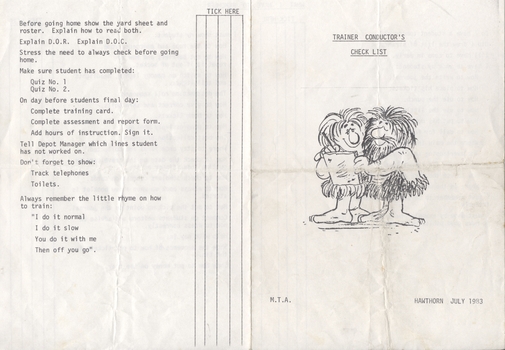 TICK HERE
Before going home show the yard sheet and
roster. Explain how to read both.
Explain D.O.R. Explain D.O.C.
Stress the need to always check before going
home.
Make sure student has completed:
Quiz No. 1
Quiz No. 2.
On day before students final day:
Complete training card.
Complete assessment and report form.
Add hours of instruction. Sign it.
Tell Depot Manager which lines student
has not worked on.
Don't forget to show:
Track telephones
Toilets.
Always remember the little rhyme on how
to train:
"I do it normal
I do it slow
You do it with me
Then off you go".
TRAINER CONDUCTOR'S
CHECK LIST
M.T.A.
HAWTHORN JULY 1983